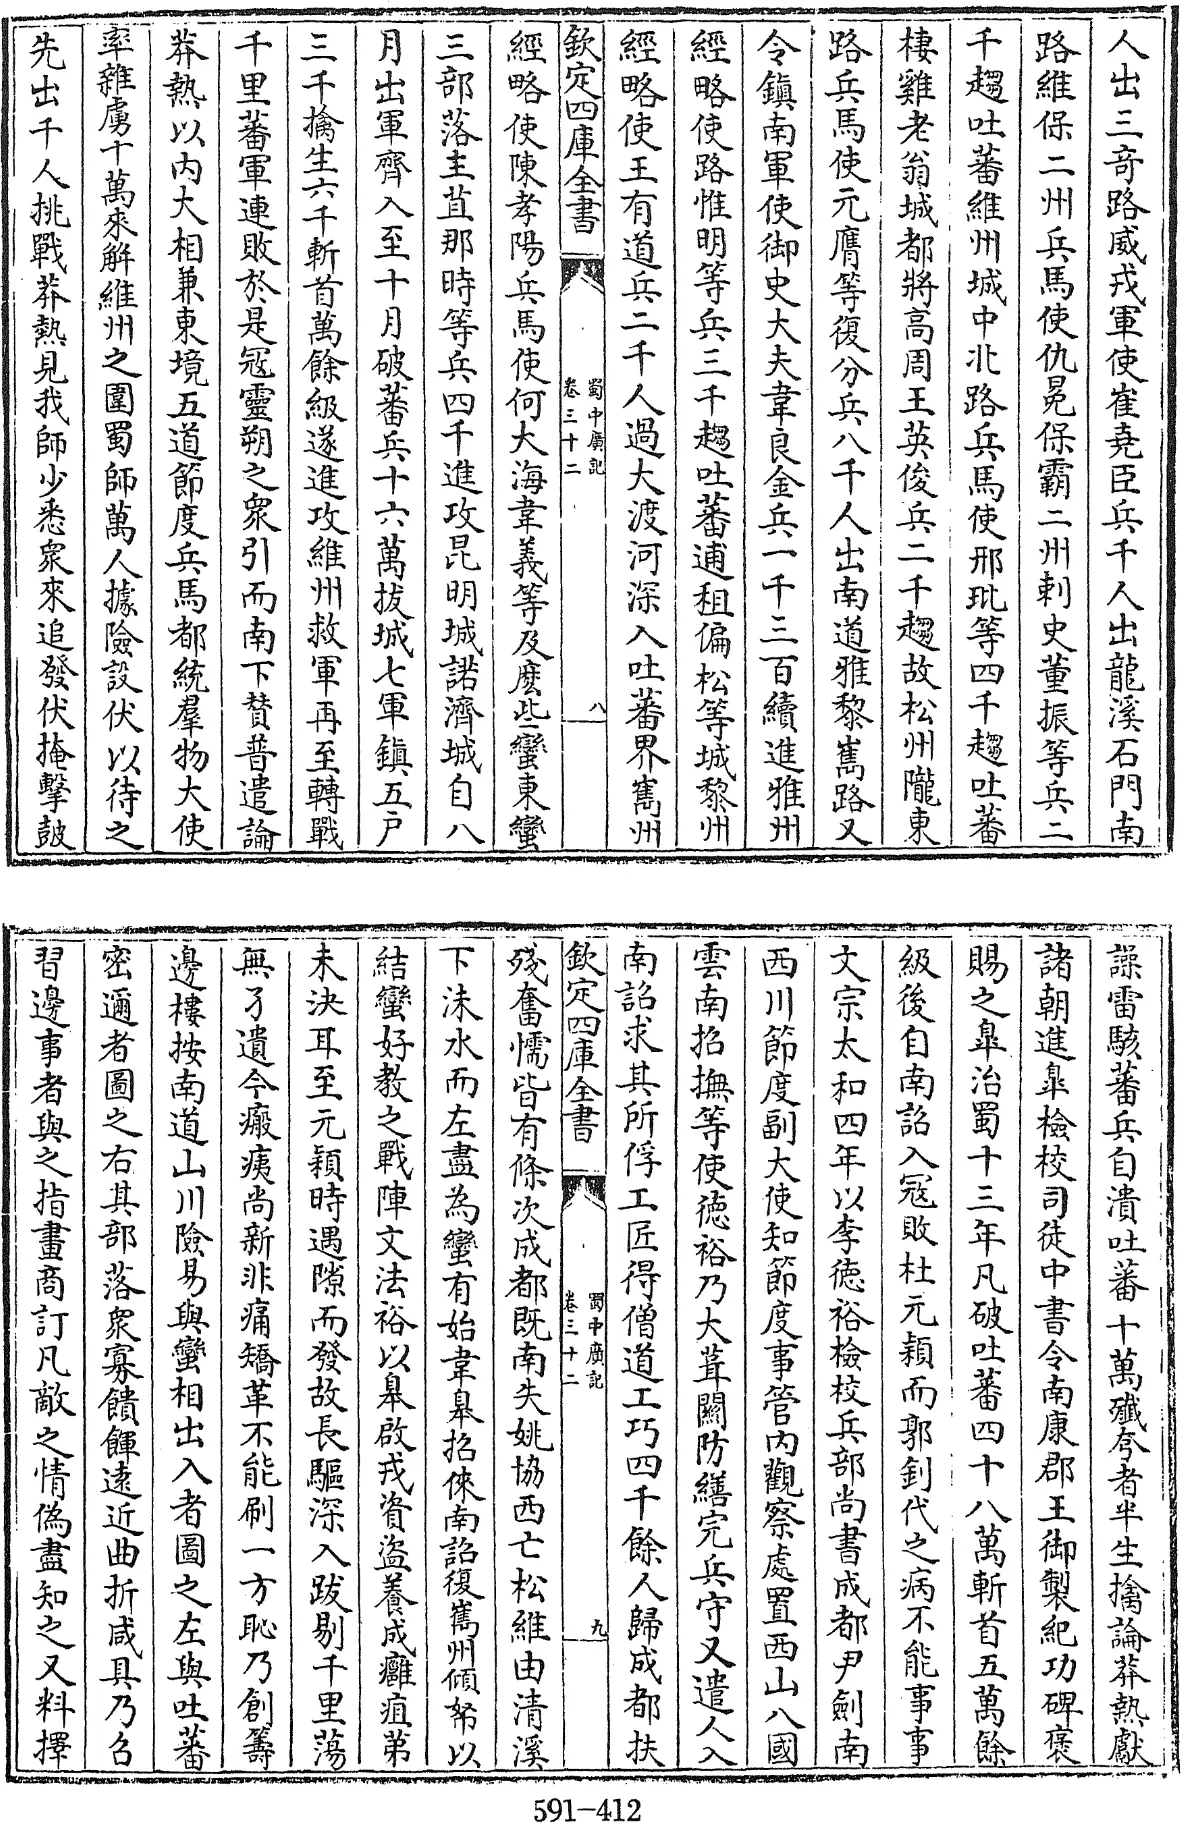 人出三竒路威戎軍使崔堯臣兵千人出龍溪石門南
路維保二州兵馬使仇冕保霸二州刺史董振等兵二
千趨吐蕃維州城中北路兵馬使邢玼等四千趨吐蕃
棲雞老翁城都將高周王英俊兵二千趨故松州隴東
路兵馬使元膺等復分兵八千人出南道雅黎嶲路又
令鎮南軍使御史大夫韋良金兵一千三百續進雅州
經略使路惟明等兵三千趨吐蕃逋租偏松等城黎州
經略使王有道兵二千人過大渡河深入吐蕃界嶲州
欽定四庫全書
蜀中廣記
卷三十二
八
經略使陳孝陽兵馬使何大海韋義等及麽些蠻東蠻
三部落主苴那時等兵四千進攻昆明城諾濟城自八
月出軍齊入至十月破蕃兵十六萬拔城七軍鎮五户
三千擒生六千斬首萬餘級遂進攻維州救軍再至轉戰
千里蕃軍連敗於是冦靈朔之衆引而南下賛普遣論
莽熱以内大相兼東境五道節度兵馬都統羣物大使
率雜虜十萬來解維州之圍蜀師萬人據險設伏以待之
先出千人挑戰莽熱見我師少悉衆來追發伏掩擊鼓
譟雷駭蕃兵自潰吐蕃十萬殲夸者半生擒論莽熱獻
諸朝進臯檢校司徒中書令南康郡王御製紀功碑褒
賜之臯治蜀十三年凡破吐蕃四十八萬斬首五萬餘
級後自南詔入冦敗杜元穎而郭釗代之病不能事事
文宗太和四年以李德裕檢校兵部尚書成都尹劍南
西川節度副大使知節度事管内觀察處置西山八國
雲南招撫等使德裕乃大葺關防繕完兵守又遣人入
南詔求其所俘工匠得僧道工巧四千餘人歸成都扶
欽定四庫全書
蜀中廣記
卷三十二
九
殘奮懦皆有條次成都既南失姚協西亡松維由清溪
下沬水而左盡為蠻有始韋臯招倈南詔復嶲州傾帑以
結蠻好教之戰陣文法裕以臯啟戎資盗養成癰疽第
未決耳至元穎時遇隙而發故長驅深入跋剔千里蕩
無孑遺今瘢痍尚新非痛矯革不能刷一方恥乃創籌
邊樓按南道山川險易與蠻相出入者圖之左與吐蕃
密邇者圖之右其部落衆寡饋餫逺近曲折咸具乃召
習邊事者與之指畫商訂凡敵之情偽盡知之又料擇
591-412